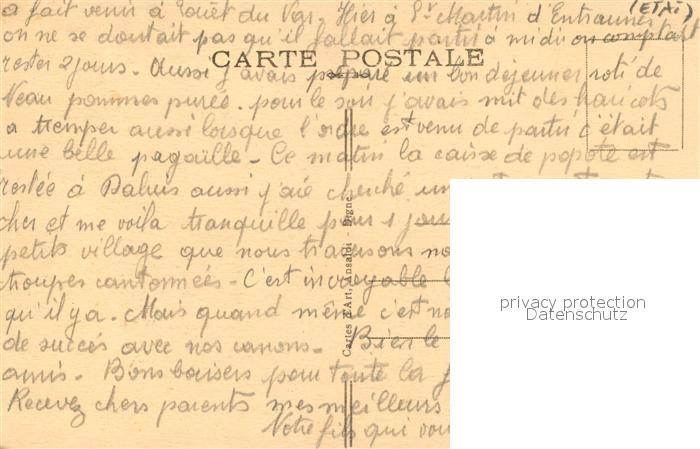 (ETAT)
a fait venir à Touët du Var. Hier à St Martin d'Entraunes
on ne se doutait pas qu'il fallait partir à midi on comptait
CARTE POSTALE
rester 2 jours. Aussi j'avais préparé un bon déjeuner roti de
Veau pommes purée. pour le soir j'avais mit des haricots
a tremper aussi lorsque l'ordre est venu de partir c'était
une belle pagaille - Ce matin la caisse de popote est
restée à Daluis aussi j'aie cherché un
cher et me voila tranquille pour 1 jour
petits village que nous traversons
troupes cantonnées - C'est incroyable
qu'il y a. Mais quand même c'est
de succés avec nos canons - Bier le
amis - Bons baisers pour toute la
Recevez chers parents mes meilleurs
Votre fils qui vous
Cartes d'Art, Ansaldi - Digne
privacy protection
Datenschutz